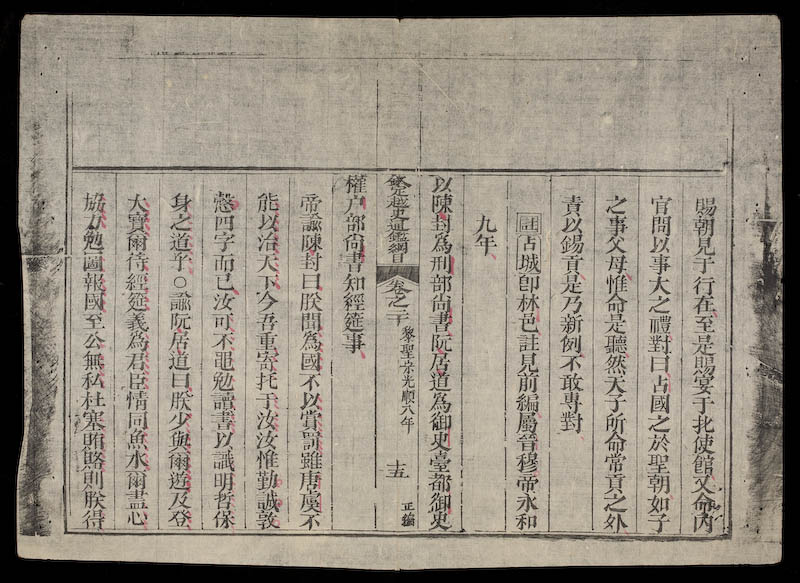 賜朝見于行在至是賜宴于北使館又命内
官問以事大之禮對曰占國之於聖朝如子
之事父母惟命是聽然天子所命常貢之外
責以錫貢是乃新例不敢專對
註占城即林邑註見前編屬晉穆帝永和
九年
以陳封爲刑部尚書阮居道爲御史臺都御史
欽定越史通鑑綱目 卷之二十 黎聖宗光順八年 十五 正編
權户部尚書知經筵事
帝諭陳封曰朕聞爲國不以賞罰雖唐虞不
能以治天下今吾重寄托于汝汝惟勤誠敦
慤四字而已汝可不黽勉讀書以識明哲保
身之道乎○諭阮居道曰朕少與爾遊及登
大寶爾待經筵義爲君臣情同魚水爾盡心
協力勉圖報國至公無私杜塞賄賂則朕得